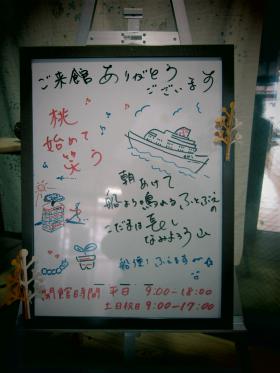 ご来館ありがとう
ございます
桃
始めて
笑う
朝あけて
船より鳴れるふとぶえの
こだまは長し
なみよろう山
船笛!ふえますが
開館時間 平日 9:00-18:00
土日祝日 9:00-17:00